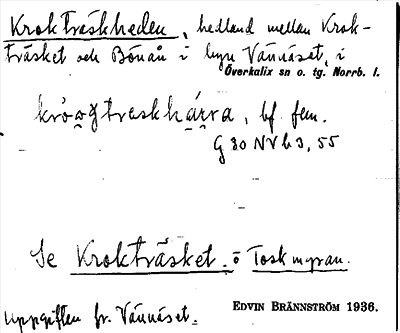 Krokträskheden, hedland mellan Krok-
träsket och Bönån i byn Vännäset, i
Överkalix sn o. tg. Norrb. l.
bf. fem.
G 30 NV b 3, 55
Se Krokträsket. o Toskmyran.
Uppgiften fr. Vännäset.
EDVIN BRÄNNSTRÖM 1936.